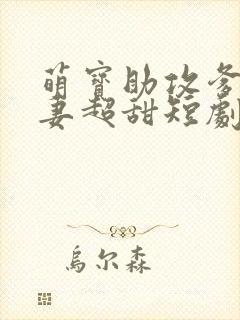 萌寶助攻爹
妻超甜短劇
烏尔森